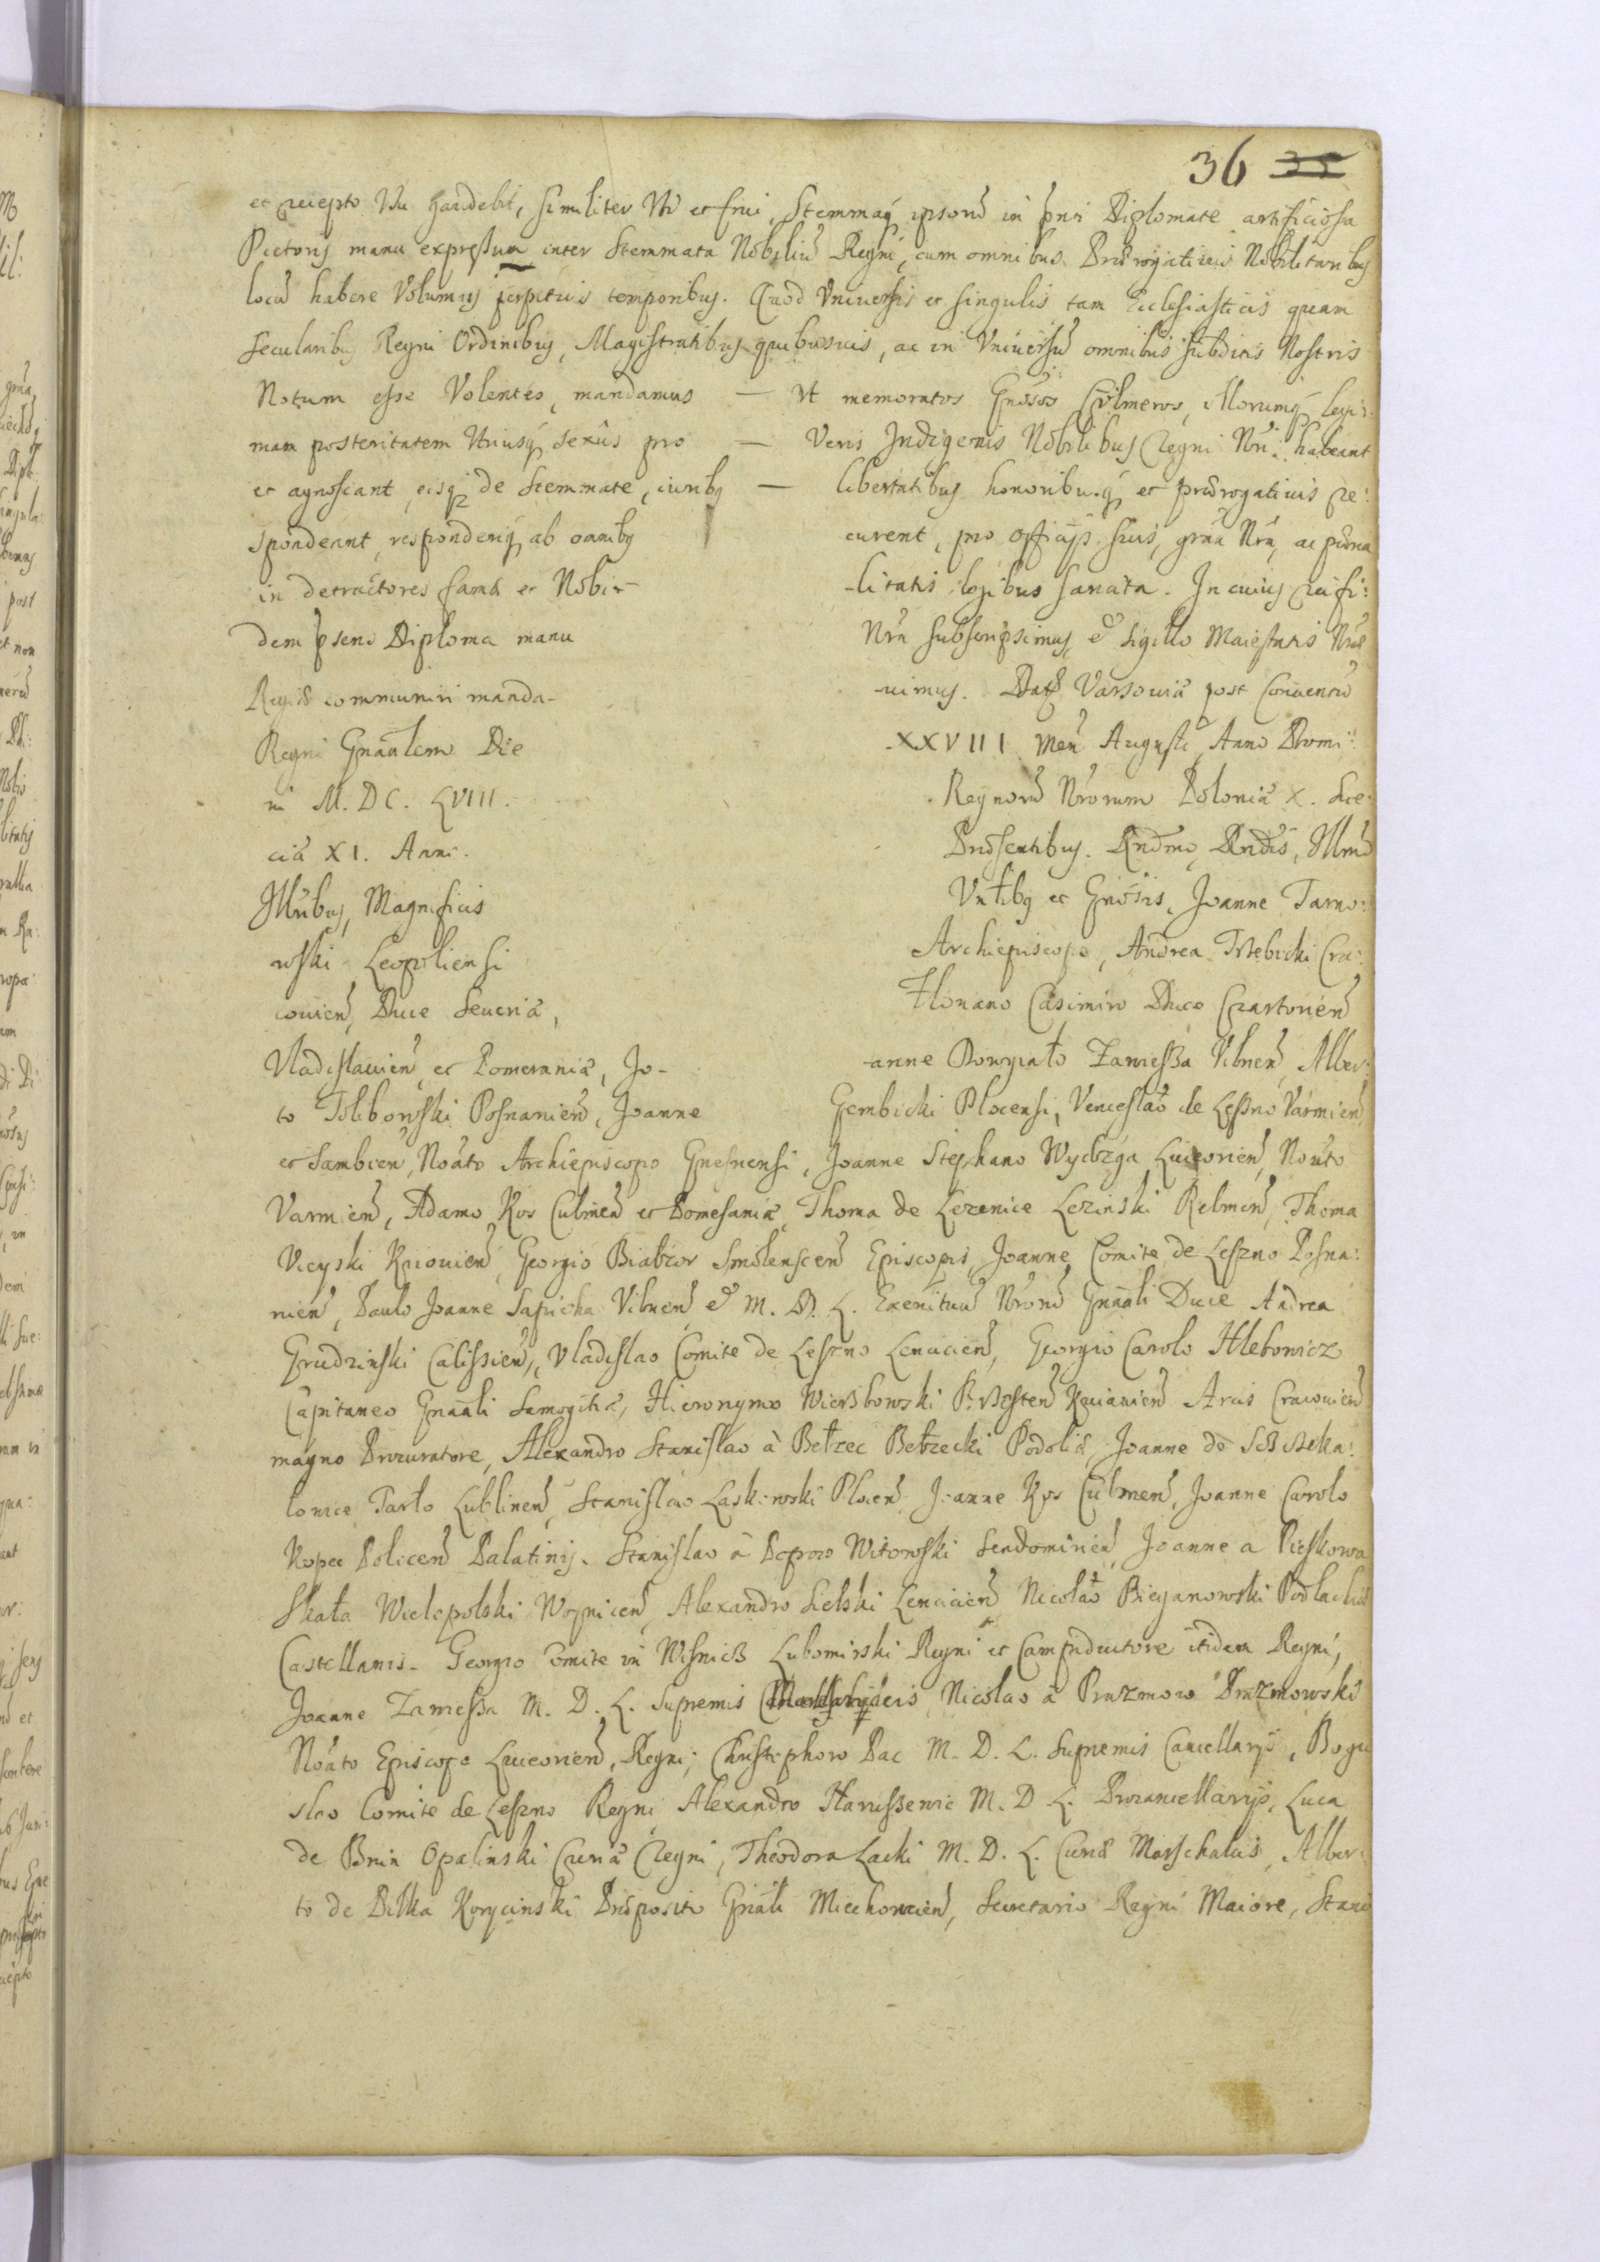 36 35
et recepto Usu gaudebit, similiter Uti et frui, Stemmaq ipsorū in pnti Diplomate artificiosa
Pictoris manu expressum inter Stemmata Nobiliū Regni, cum omnibus Prærogativis Nobilitaribus
locū habere Volumus perpetuis temporibus. Quod Universis et singulis tam Ecclesiasticis quam
Secularibus Regni Ordinibus, Magistratibus quibusvis, ac in Universū omnibus subditis Nostris
Notum esse Volentes, mandamus — Ut memoratos Gnosos Culmeros, illorumq legit:
mam posteritatem Utriusq sexûs pro — Veris Indigenis Nobilibus Regni Nri habeant
et agnoscant, eisq de Stemmate, iuribq — libertatibus honoribusq et prærogativis re:
spondeant, responderiq ab omnibq curent, pro officijs suis, grãa Nrã, ac pœna
in detractores famæ et Nobi- -litatis legibus sancita. In cuius rei fi:
dem psens Diploma manu Nrã subscripsimus et sigillo Maiestatis Nræ
Regiæ communiri manda- -uimus. Datū Varsouiæ post Conuentū
Regni Gnãlem Die XXVIII Men Augusti, Anno Domi:
ni M. DC. LVIII. Regnorū Nrorum Poloniæ X. Sue:
ciæ XI. Anni. Præsentibus. Rndmo, Rndis, Illmo
Illribus, Magnificis Vnlibq et Gnosis, Joanne Tarno:
wski Leopoliensi Archiepiscopo, Andrea Trzebicki Cra:
couien, Duce Seueriæ, Floriano Casimiro Duce Czartorien
Vladislauien et Pomeraniæ, Jo- -anne Dowgiało Zawissza Vilnen, Alber:
to Tolibowski Posnanien, Joanne Gembicki Plocensi, Venceslao de Leszno Varmien
et Sambien, Noãto Archiepiscopo Gnesnensi, Joanne Stephano Wydzga Luceorien, Noãto
Varmien, Adamo Kos Culmen et Pomesaniæ, Thoma de Lezenice Lezinski Chelmen, Thoma
Vieyski Kiiouien, Georgio Białłozor Smolenscen Episcopis, Joanne Comite de Leszno Posna:
nien, Paulo Joanne Sapieha Vilnen et M. D. L. Exercituū Nrorū Gnãli Duce Andrea
Grudzinski Calissien, Vladislao Comite de Leszno Lencicien, Georgio Carolo Hlebowicz
Capitaneo Gnãli Samogitiæ, Hieronymo Wierzbowski Brzesten Kuiauien Arcis Cracouien
magno Procuratore, Alexandro Stanislao à Bełzec Bełzecki Podoliæ, Joanne de Szczeka:
łowice Tarło Lublinen, Stanislao Laskowski Plocen Joanne Kos Culmen, Joanne Carolo
Kopec Polocen Palatinis. Stanislao à Popow Witowski Sendomirien, Joanne a Pieskowa
Skała Wielopolski Woynicen, Alexandro Sielski Lencicien, Nicolao Bieganowski Podlachiæ
Castellanis. Georgio Comite in Wisnicz Lubomirski Regni et Campiductore itidem Regni,
Joanne Zawissza M. D. L. Supremis Nicolao à Prazmow Prazmowski
Noãto Episcopo Luceorien, Regni; Christophoro Pac M. D. L. Supremis Cancellarijs, Bogu
slao Comite de Leszno Regni Alexandro Narussewic M. D. L. Procancellarijs, Luca
de Bnin Opalinski Curiæ Regni, Theodoro Lacki M. D. L. Curiæ Marschalcis, Alber:
to de Pilka Korycinski Præposito Gnãli Miechouien, Secretario Regni Maiore, Stani